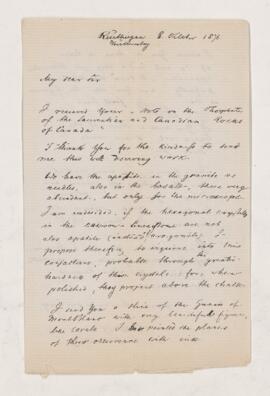 Reutlingen 8 October 1876
My dear Sir
I received your "Note on the Phosphates
of the Laurentian and Cambrian Rocks
of Canada"
I thank you for the kindness to send
me this work.
We have the apatite in the granite as
needles, also in the basalts, there very
abundant, but only for the microscope.
I am undecided, if the hexagonal crystals
in the limestone are not
also apatite
propose therefore, to inquire into this
conjecture, probable through the great
hardness of these crystals: for, when
polished, they project above the chalk.
I send you a slice of the Gneiss of
with very beautiful figures,
like corals. I have painted the places
of their occurrence with ink